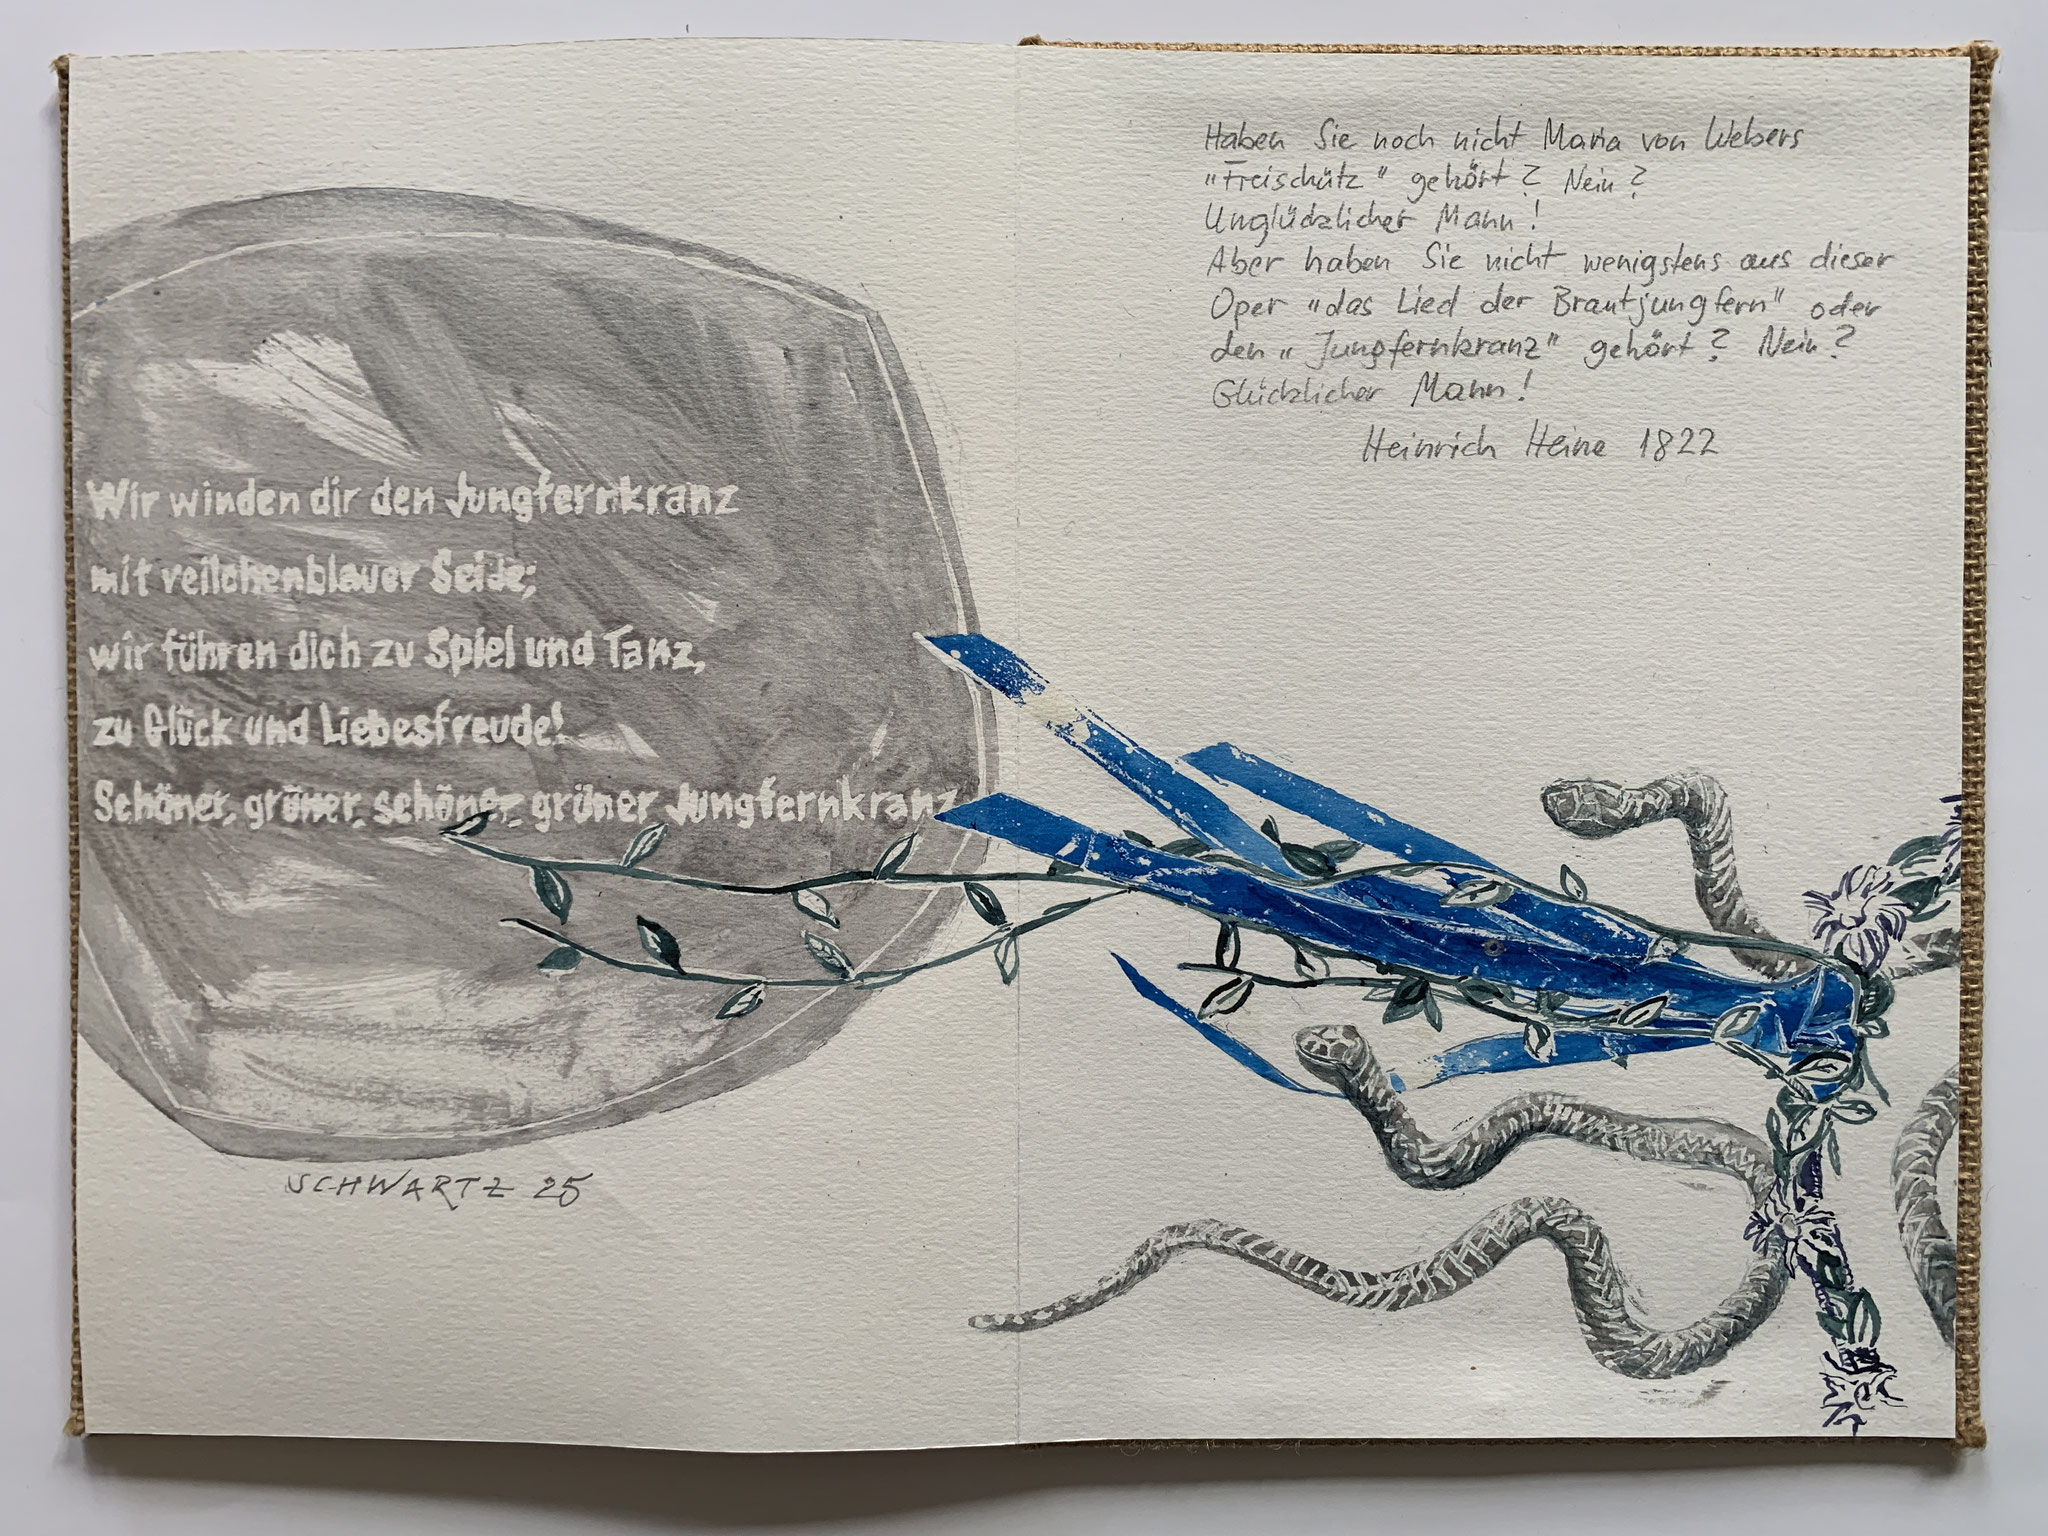 Wir winden dir den Jungfernkranz
mit veilchenblauer Seide;
wir führen dich zu Spiel und Tanz,
zu Glück und Liebesfreude!
Schöner, grüner, schöner, grüner Jungfernkranz
SCHWARTZ 25
Haben Sie noch nicht Maria von Webers
"Freischütz" gehört? Nein?
Unglücklicher Mann!
Aber haben Sie nicht wenigstens aus dieser
Oper "das Lied der Brautjungfern" oder
den "Jungfernkranz" gehört? Nein?
Glücklicher Mann!
Heinrich Heine 1822